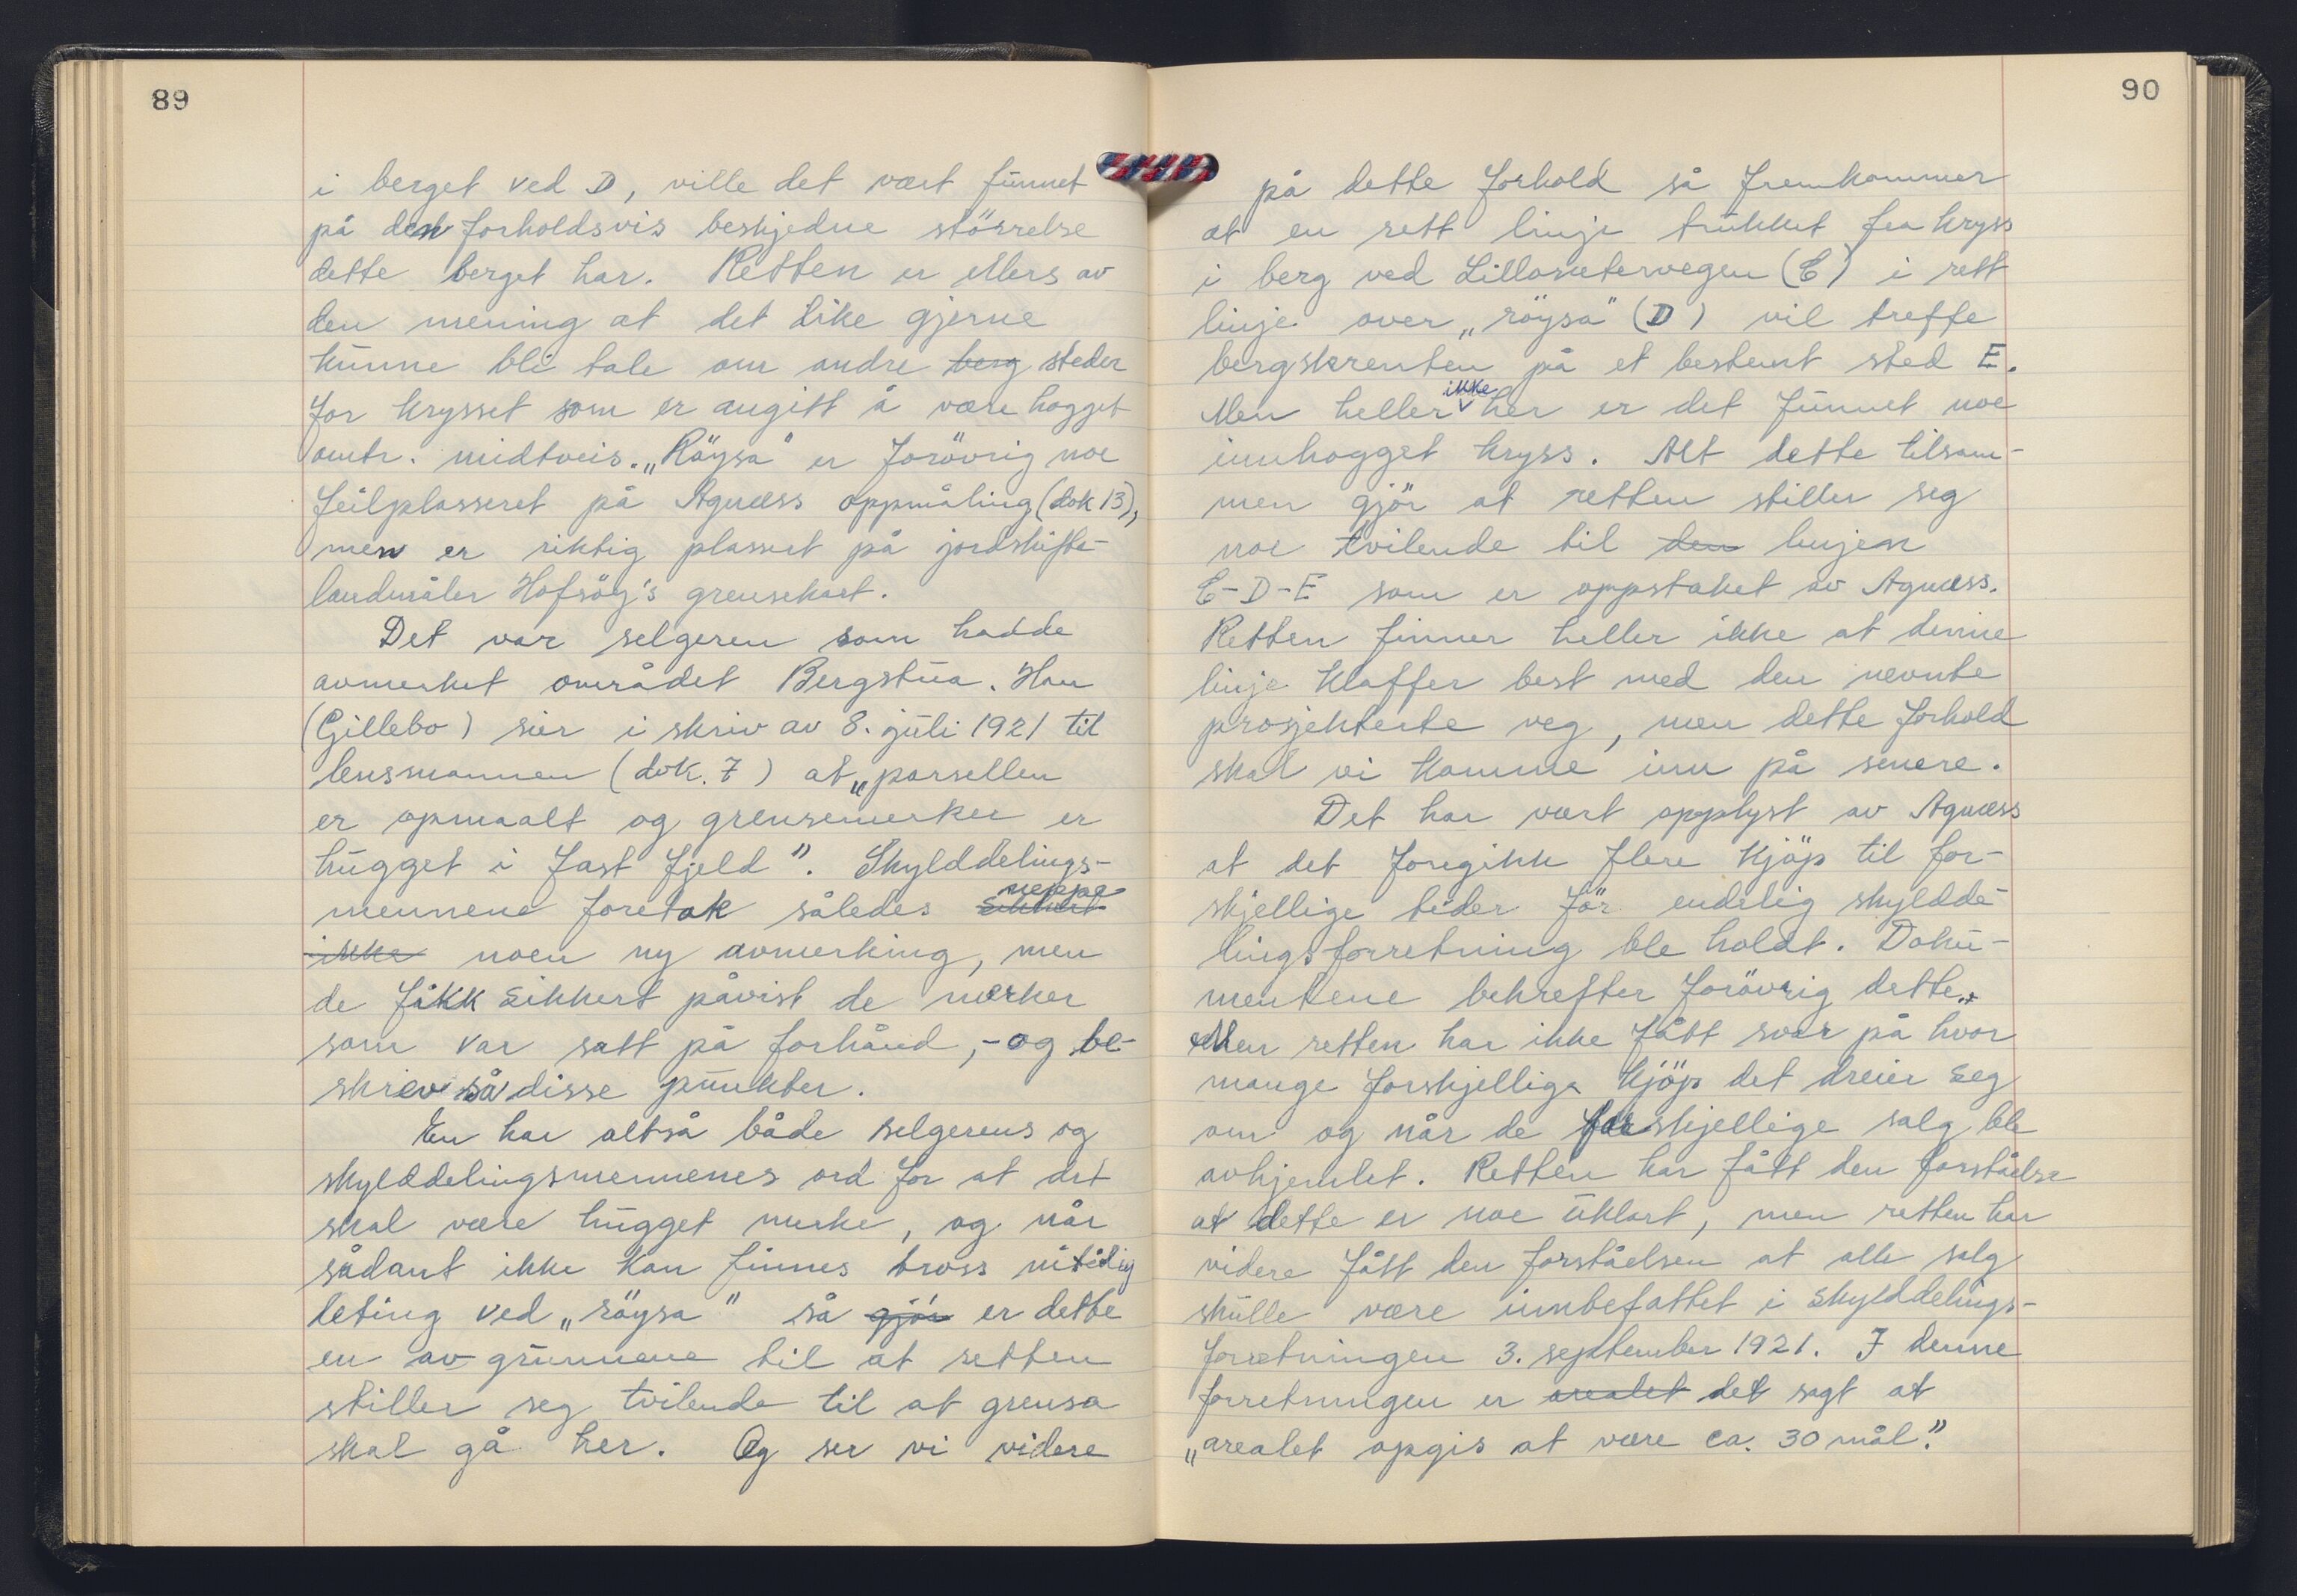 89
i berget ved D, ville det vært funnet
på den forholdsvis beskjedne störrelse
dette berget har. Retten er ellers av
den mening at det like gjerne
kunne bli tale om andre berg steder
for krysset som er angitt å være hogget
omtr. midtveis. „Röysa" er forövrig noe
feilplasseret på Agnæss oppmåling (dok 13),
men er riktig plassert på jordskifte-
landmåler Hofsöy's grensekart.
Det var selgeren som hadde
avmerket området Bergstua. Han
(Gillebo) sier i skriv av 8. juli 1921 til
lensmannen (dok. 7) at „parsellen
er opmaalt og grensemerker er
hugget i fast fjeld". Skylddelings-
mennene foretok således sikkert neppe
ikke noen ny avmerking, men
de fikk sikkert påvist de merker
som var satt på forhånd, - og be-
skrev så disse punkter.
En har altså både selgerens og
skylddelingsmennenes ord for at det
skal være hugget merke, og når
sådant ikke kan finnes tross iitidig
leting ved „röysa" så gjör er dette
en av grunnene til at retten
stiller seg tvilende til at grensa
skal gå her. Og ser vi videre
90
på dette forhold så fremkommer
at en rett linje trukket fra kryss
i berg ved Lillosætervegen (C) i rett
linje over „röysa" (D) vil treffe
bergskrenten på et bestemt sted E.
Men heller ikke her er det funnet noe
innhogget kryss. Alt dette tilsam-
men gjör at retten stiller seg
noe tvilende til den linjen
C-D-E som er oppstaket av Agnæss.
Retten finner heller ikke at denne
linje klaffer best med den nevnte
prosjekterte veg, men dette forhold
skal vi komme inn på senere.
Det har vært opplyst av Agnæss
at det foregikk flere kjöp til for-
skjellige tider för endelig skyldde-
lingsforretning ble holdt. Doku-
mentene bekrefter forövrig dette.
Men retten har ikke fått svar på hvor
mange forskjellige kjöp det dreier seg
om og når de forskjellige salg ble
avhjemlet. Retten har fått den forståelse
at dette er noe uklart, men retten har
videre fått den forståelsen at alle salg
skulle være innbefattet i skylddelings-
forretningen 3. september 1921. I denne
forretningen er arealet det sagt at
„arealet opgis at være ca. 30 mål."